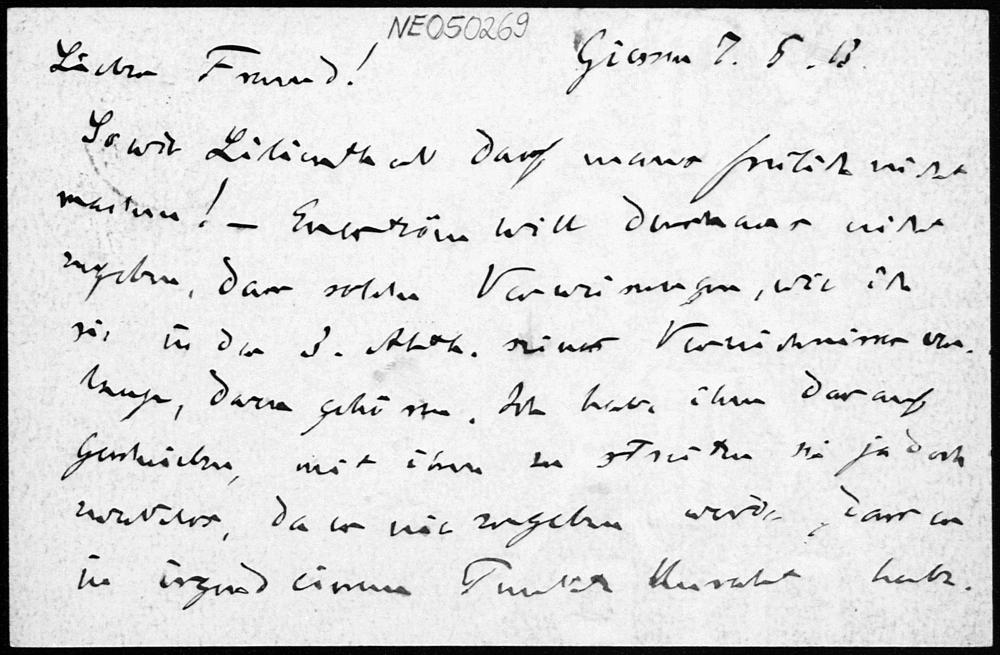 NE050269
Giessen 7. 5. 13.
Lieber Freund!
So wie Lilienthal darf mans freilich nicht
machen! — Eneström will durchaus nicht
zugeben, dass solche Verweisungen, wie ich
sie in der 3. Abth. seines Verzeichnisses ver-
lange, darin gehören. Ich habe ihm darauf
geschrieben, mit ihm zu streiten sei ja doch
zwecklos, da er nie zugeben werde, dass er
in irgend einem Punkte Unrecht habe.